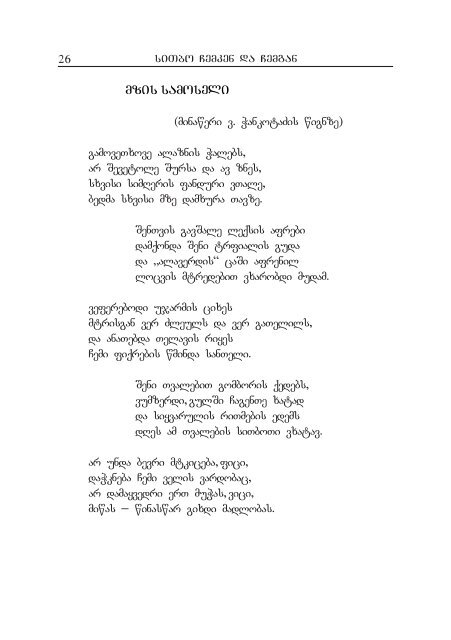 26 სითბო ჩემკენ და ჩემგან
მზის სამოსელი
(მინაწერი ვ. ჭანკოტაძის წიგნზე)
გამოვეთხოვე ალაზნის ჭალებს,
არ შევეტოლე შურსა და ავ ზნეს,
სხვისი სიმღერის ფანდური ვთალე,
ბედმა სხვისი მზე დამხურა თავზე.
შენთვის გავშალე ლექსის აფრები
დამქონდა შენი ტრფიალის გუდა
და „ალავერდის“ ცაში აფრენილ
ლოცვის მტრედებით ვხარობდი მუდამ.
ვეფერებოდი უჯარმის ციხეს
მტრისგან ვერ ძლეულს და ვერ გათელილს,
და ანათებდა თელავის რიყეს
ჩემი ფიქრების წმინდა სანთელი.
შენი თვალებით გომბორის ქედებს,
ვუმზერდი, გულში ჩაგენთე ხატად
და სიყვარულის რითმების ედემს
დღეს ამ თვალების სითბოთი ვხატავ.
არ უნდა ბევრი მტკიცება, ფიცი,
დაჭკნება ჩემი ველის ვარდობაც,
არ დამაყვედრი ერთ მუჭას, ვიცი,
მიწას – წინასწარ გიხდი მადლობას.